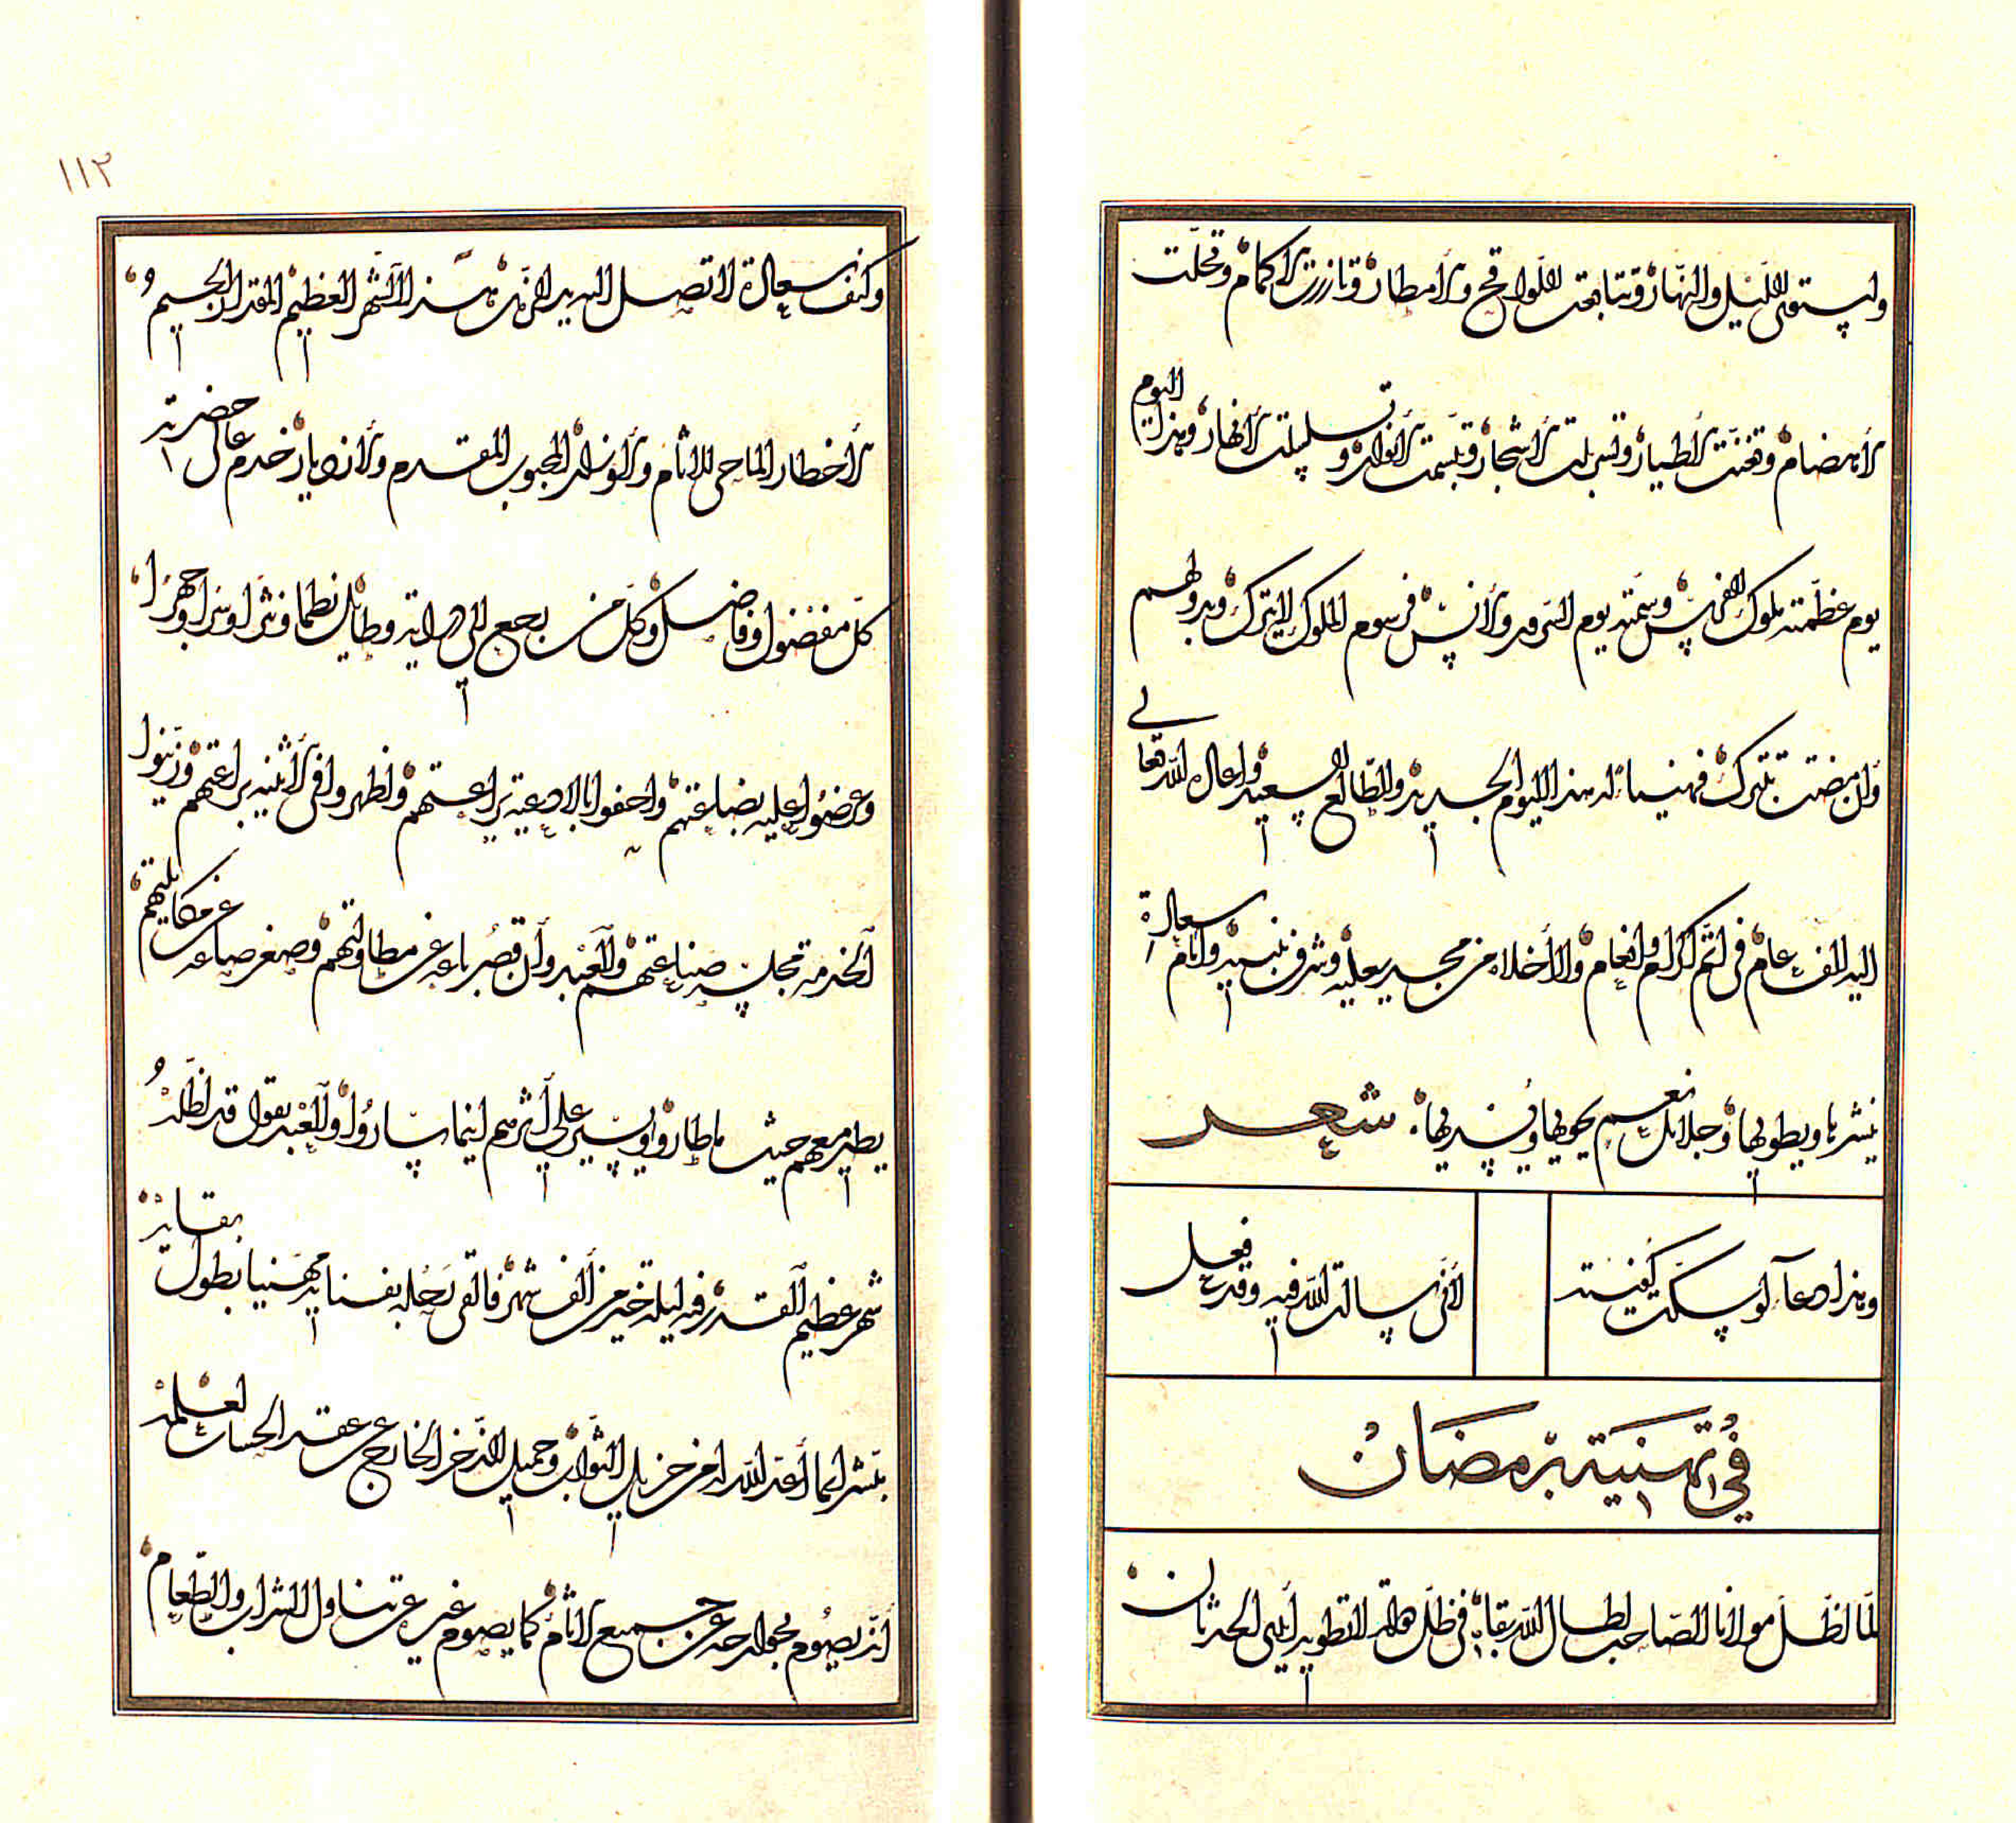 واستوى الليل والنهار وتتابعت اللواقح والأمطار وتازرت الاكمام وتحلت
الأهضام وتغنت الأطيار وتسربلت الأشجار وتبسمت الأنوار وتسلسلت الأنهار وهذا اليوم
يوم عظمته ملوك الفرس وسمته يوم السرور والأنس فرسوم الملوك لا يترك وبدولهم
وان مضت تتبرك فهنيا له هذا اليوم الجديد والطالع السعيد واعاد الله تعالى
اليه الف عام في اتم اكرام وانعام والأخلاه من مجد يعليه وشرف يبنيه وايام سعادة
ينشرها ويطويها وجلائل نعم يحويها ويسديها شعر
وهذا دعآء لو سكت كفيته
لأني سالت الله فيه وقد فعل
في تهنية برمضان
لما اظل مولانا الصاحب اطال الله بقاه في ظل دولة لا تطويه أيدي الحدثان
وكنف سعادة لا تصل اليه يد الزمان هذا الشهر العظيم المقدار الجسيم
الأخطار الماحي للاثام والأوزار المحجوب المقدم والازديار خدم عالي حضرته
كل مفضول وفاضل وكل من يرجع الى دراية وطائل نظما ونثرا وسرا وجهرا
وعرضوا عليه بضاعتهم واحفوا بالادعية براعتهم واظهروا في الأثنية براعتهم وزينوا
الخدمة بمجلسه صناعتهم والعبد وان قصر باعه عن مطاولتهم وصغر صاعه عن مكايلتهم
يطير معهم حيث ما طاروا ويسير على أثرهم اينما ساروا والعبد يقول قد اظله
شهر عظيم القدر فيه ليلة خير من ألف شهر فالتقى بحوله بفنايه مهنيا بطول بقايه
بشر بما أعد الله له من جزيل الثواب وجميل الذخر الخارج عن عقد الحساب لعلمه
أنه يصوم بجوارحه عن جميع الاثام كما يصوم غيره عن تناول الشراب والطعام
١١٢